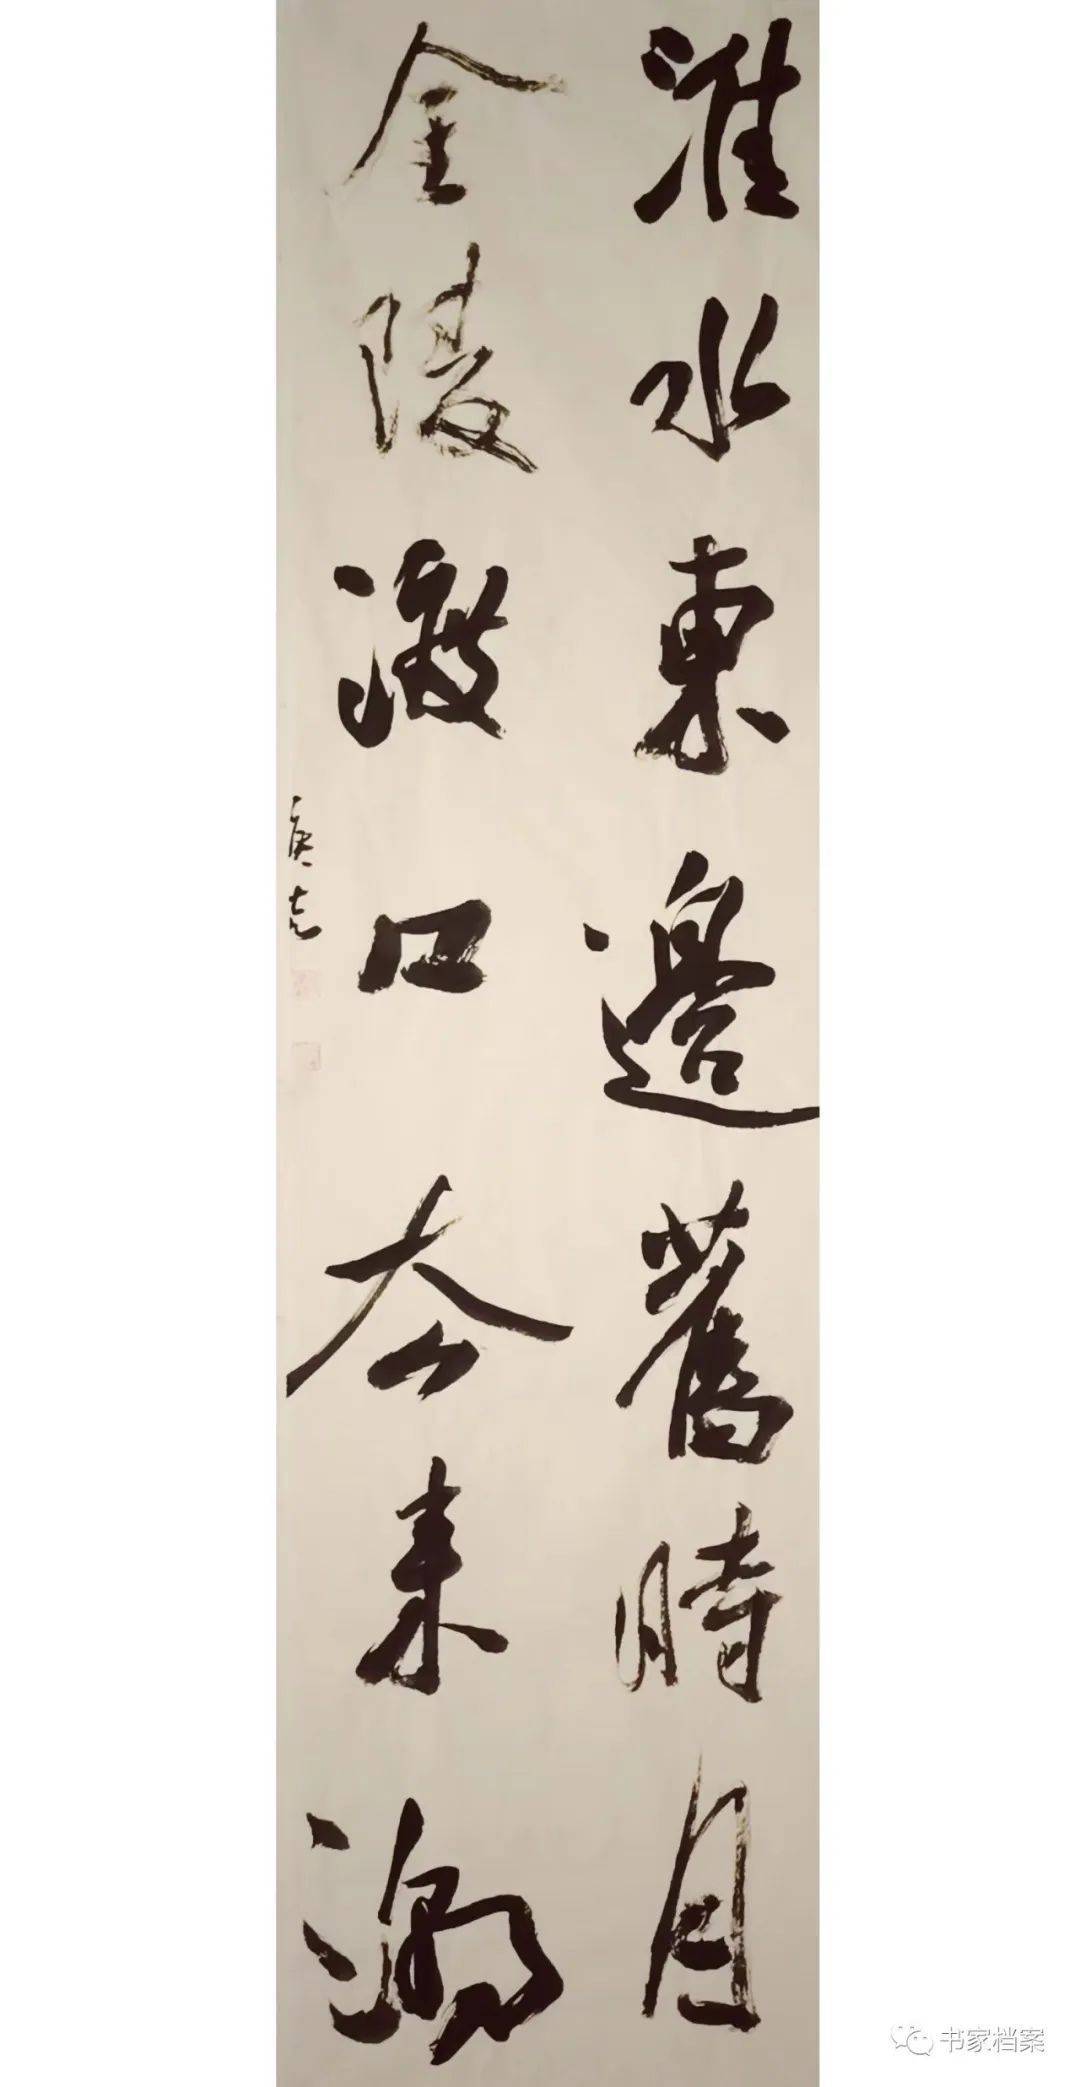 淮水東邊舊時月
金陵渡口去來潮
書家档案